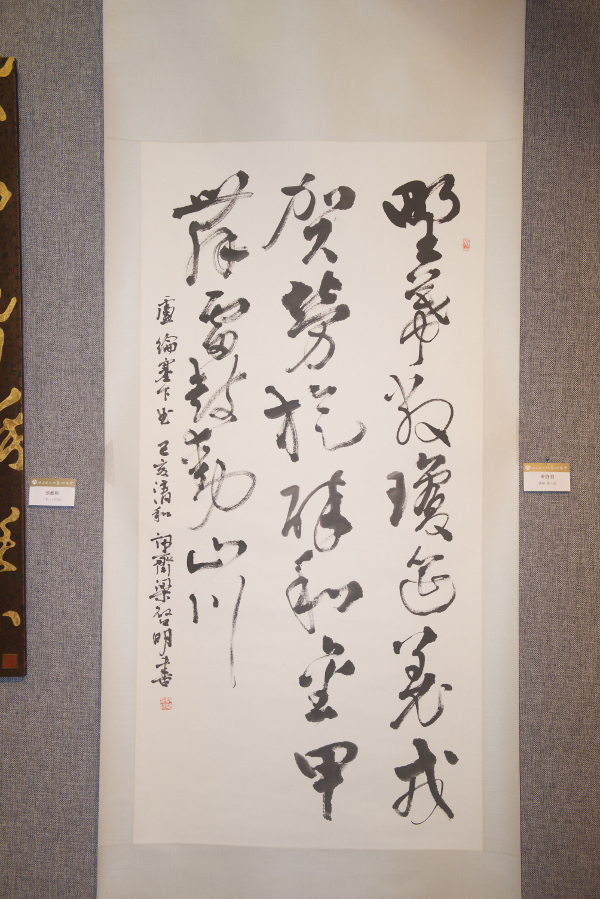 野幕敞瓊筵羌戎
賀勞旋醉和金甲
舞雷鼓動山川
盧綸塞下曲 己亥清和 齋梁啓明書